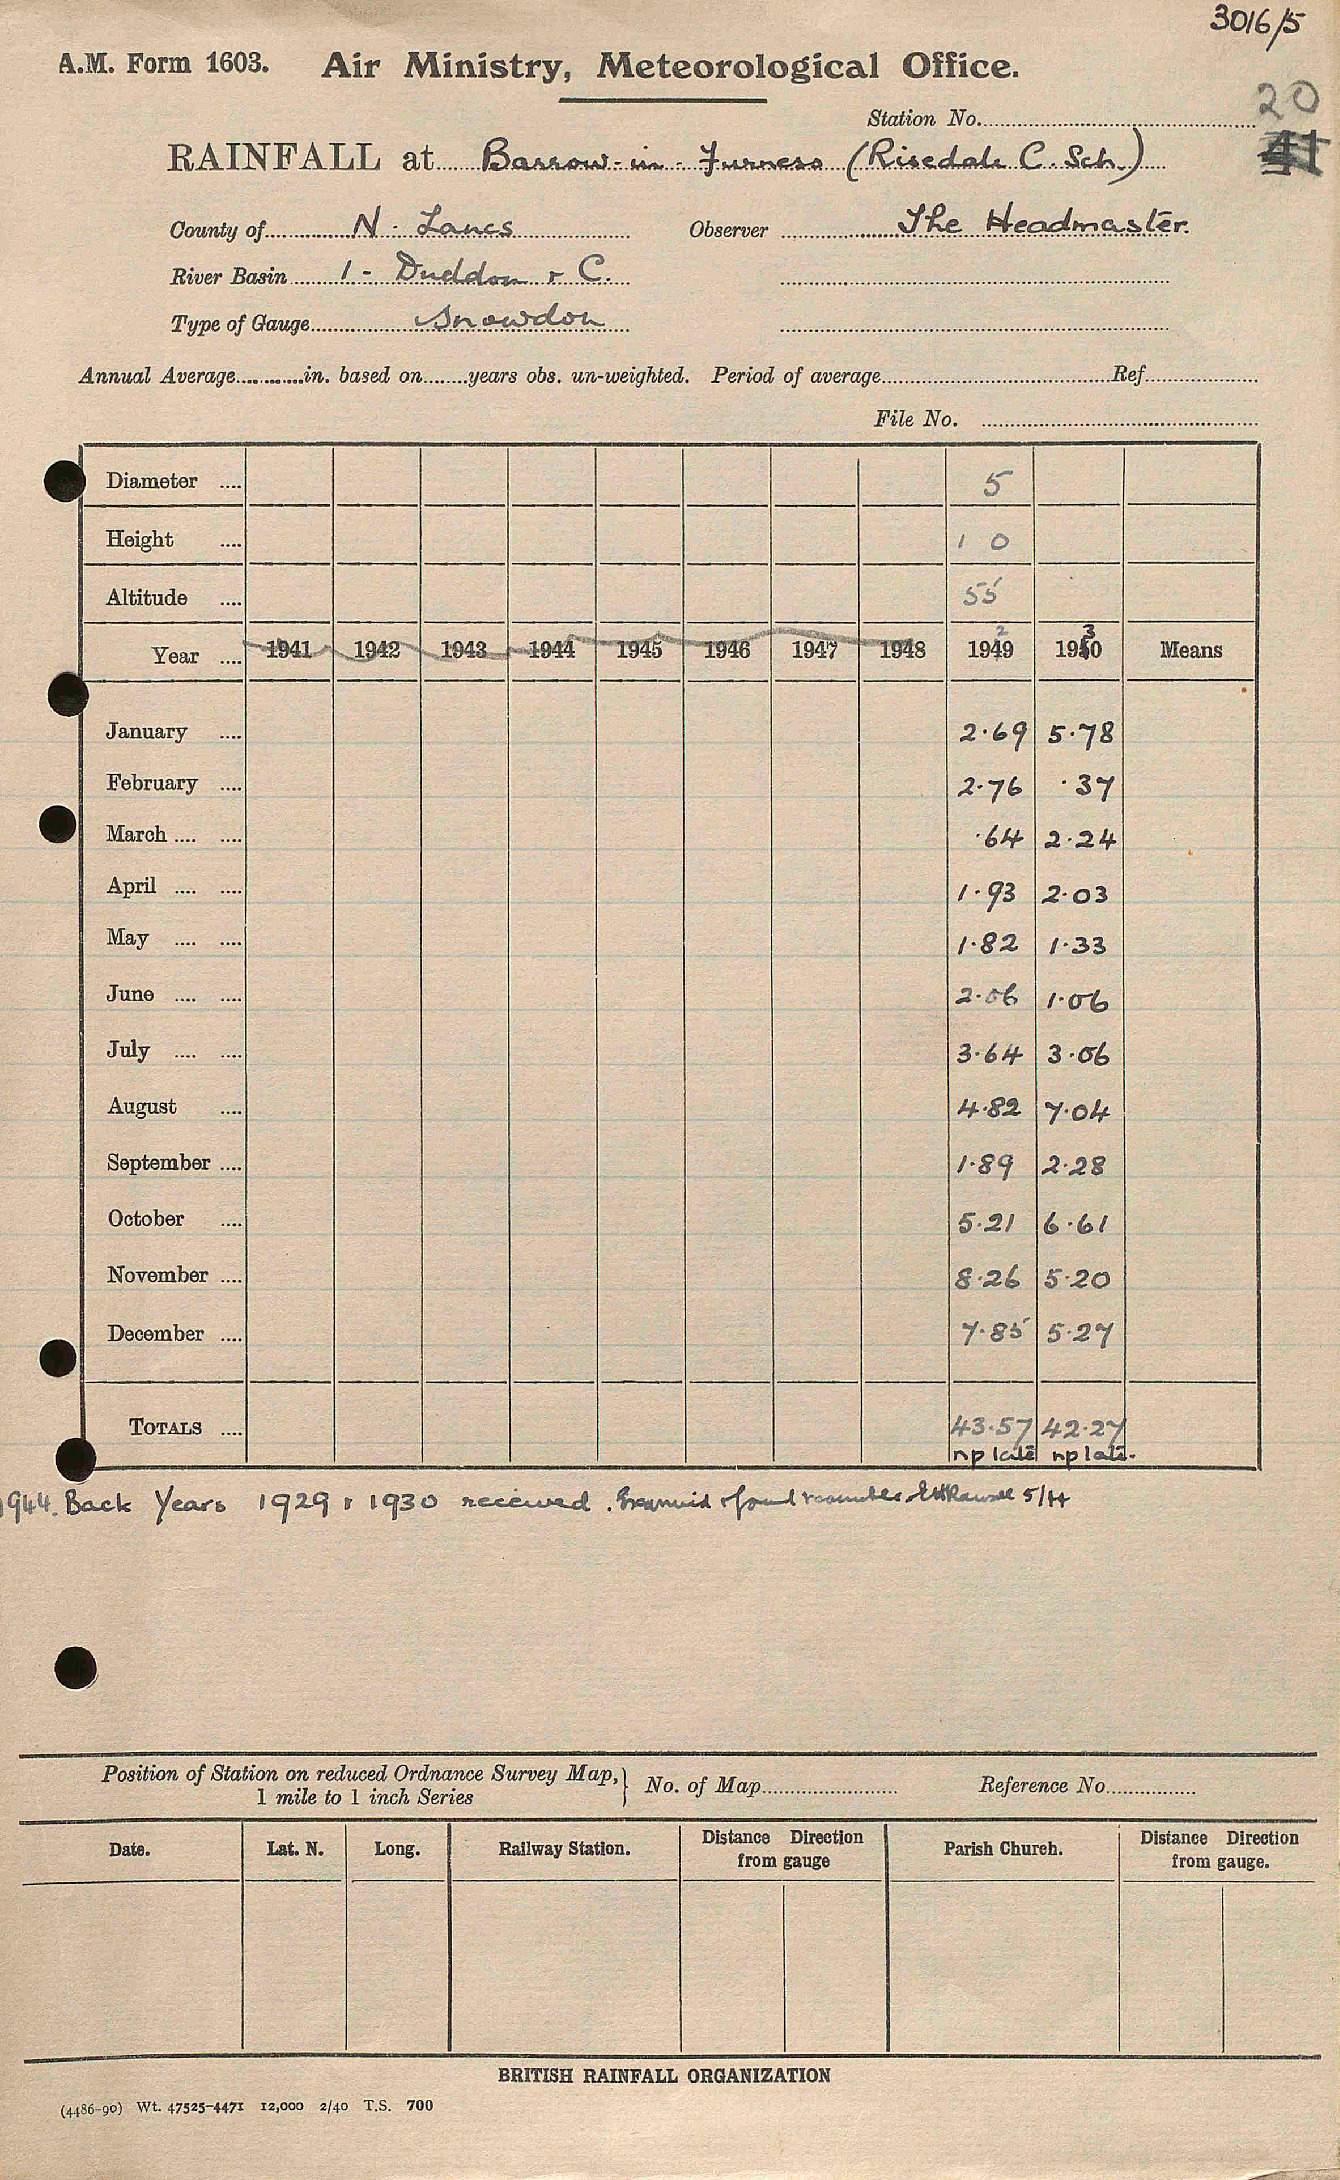 3016/5
A.M. Form 1603. Air Ministry, Meteorological Office.
20
Station No.
41
RAINFALL at Barrow-in-Furness (Risedale C. Sch.)
County of N. Lancs Observer The Headmaster.
River Basin 1 - Duddon & C.
Type of Gauge Snowdon
Annual Average............in. based on........years obs. un-weighted. Period of average Ref
File No.
Diameter .... 5
Height .... 1 0
Altitude .... 55
2 3
Year .... 1941 1942 1943 1944 1945 1946 1947 1948 1949 1950 Means
January .... 2.69 5.78
February .... 2.76 .37
March .... .... .64 2.24
April .... .... 1.93 2.03
May .... .... 1.82 1.33
June .... .... 2.06 1.06
July .... .... 3.64 3.06
August .... 4.82 7.04
September .... 1.89 2.28
October .... 5.21 6.61
November .... 8.26 5.20
December .... 7.85 5.27
TOTALS .... 43.57 42.27
np late np late.
1944. Back Years 1929 & 1930 received. & found 5/44
Position of Station on reduced Ordnance Survey Map,} No. of Map Reference No.
1 mile to 1 inch Series
Date. Lat. N. Long. Railway Station. Distance Direction from gauge Parish Church. Distance Direction from gauge.
BRITISH RAINFALL ORGANIZATION
(4486-90) Wt. 47525-4471 12,000 2/40 T.S. 700